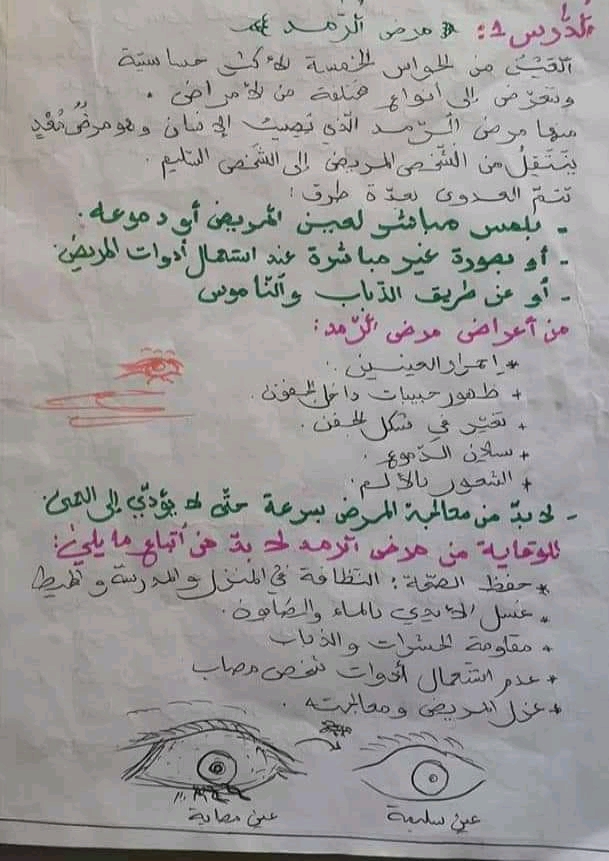 الدّرس 1: « مرض الرّمد »
العين من الحواس الخمسة الأكثر حساسية
وتتعرّض إلى أنواع مختلفة من الأمراض .
منها مرض الرّمد الّذي يُصيب الإنسان وهو مرضٌ مُعدٍ
يَنتقِلُ من الشّخص المريض إلى الشّخص السّليم .
تتمّ العدوى بعدّة طرق :
- بلمس مباشر لعين المريض أو دموعه .
- أو بصورة غير مباشرة عند استعمال أدوات المريض
- أو عن طريق الذباب والنّاموس
من أعراض مرض الرّمد :
* إحمرار العينين .
+ ظهور حبيبات داخل الجفون .
+ تغيّر في شكل الجفن .
+ سيلان الدّموع .
+ الشعور بالألم .
- لا بدّ من معالجة المرض بسرعة حتّى لا يؤدّي إلى العمى
للوقاية من مرض الرمد لا بدّ من اتّباع ما يلي :
* حفظ الصّحّة : النّظافة في المنزل والمدرسة والمحيط
* غسل الأيدي بالماء والصّابون .
* مقاومة الحشرات والذباب
* عدم استعمال أدوات شخص مصاب
* عزل المريض ومعالجته .
عين سليمة
عين مصابة